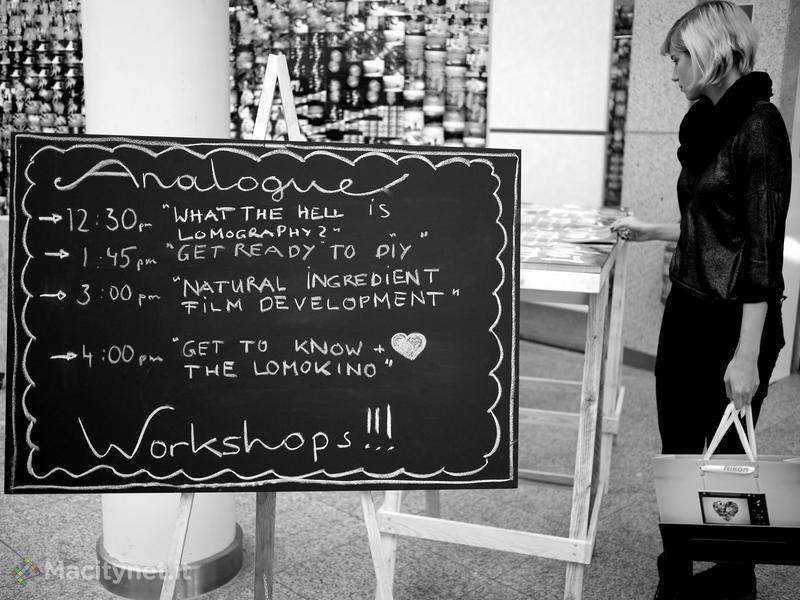 Analogue
→ 12:30pm "WHAT THE HELL iS
LOMOGRAPHY?"
→ 1:45pm "GET READY TO DiY"
→ 3:00pm "NATURAL iNGREDiENT
FiLM DEVELOPMENT"
→ 4:00pm "GET TO KNOW + ♥
THE LOMOKiNO"
Workshops!!!
Nikon
Macitynet.it